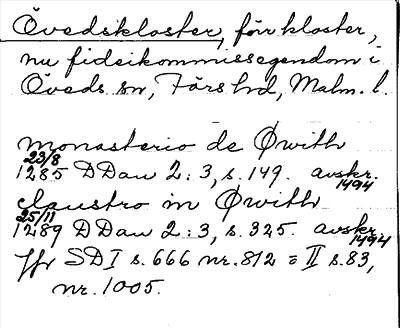 Övedskloster, förr kloster,
nu fideikommissegendom i
Öveds sn, Färs hd, Malm. l.
monasterio de Øwith
23/8
1285 DDan 2:3, s. 149. avskr. 1494
claustro in Øwith
25/11
1289 DDan 2:3, s. 325. avskr. 1494
Jfr SD I s. 666 nr. 812 = II s. 83,
nr. 1005.